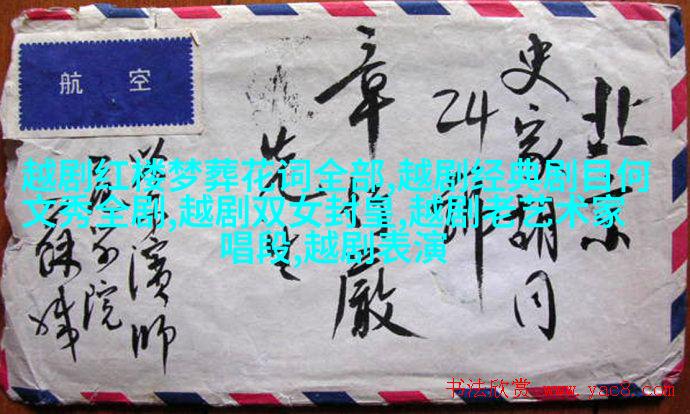 航空
北京
史家胡同
24
章
先生
越剧红楼梦葬花词全部,越剧经典剧目何
文秀全剧,越剧双女封皇,越剧老艺术家
唱段,越剧表演
书法欣赏 www.yac8.com